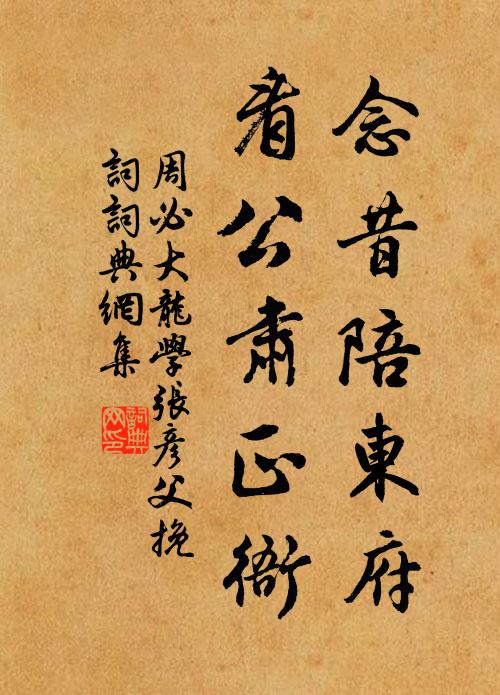 念昔陪東府
看公肅正衙
周必大龍學張彥父挽
詞詞典網集